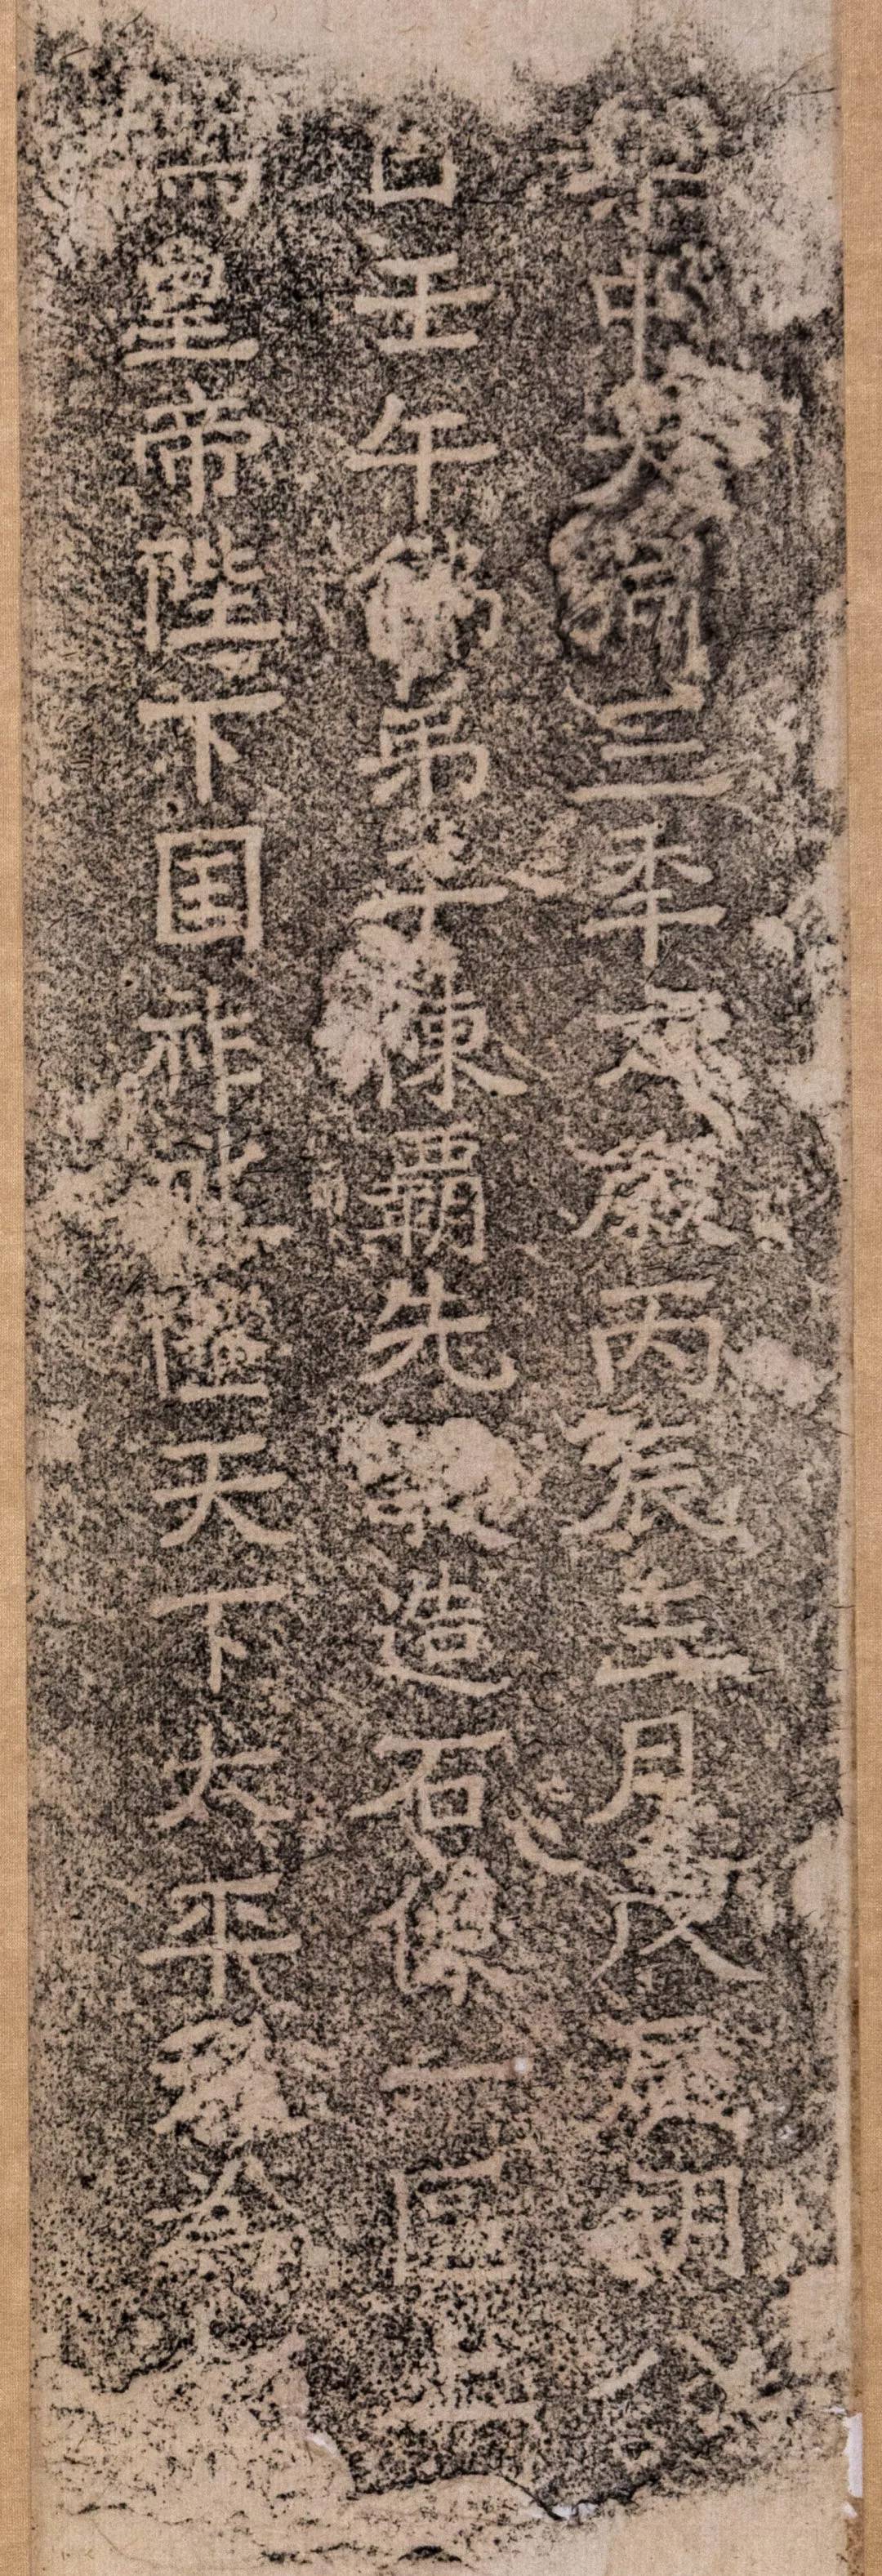 梁中大同三年太歲丙辰五月朔八
日壬午佛弟子陳霸先敬造石像一區上
為皇帝陛下囯祚永隆天下太平